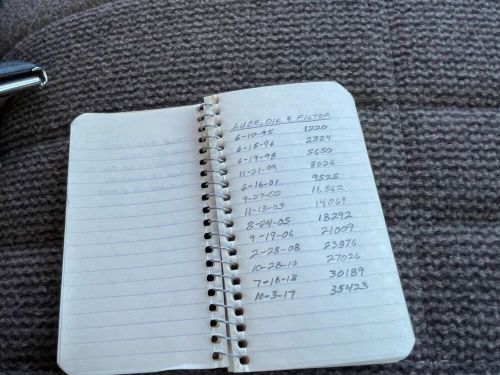 LUBE, OIL & FILTER
6-10-95 1220
6-15-96 2884
6-19-98 5650
11-21-99 8026
6-16-01 9525
9-27-02 11,562
11-13-03 14,069
8-24-05 18292
9-19-06 21009
2-28-08 23876
10-28-10 27026
7-18-13 30189
10-3-17 35423